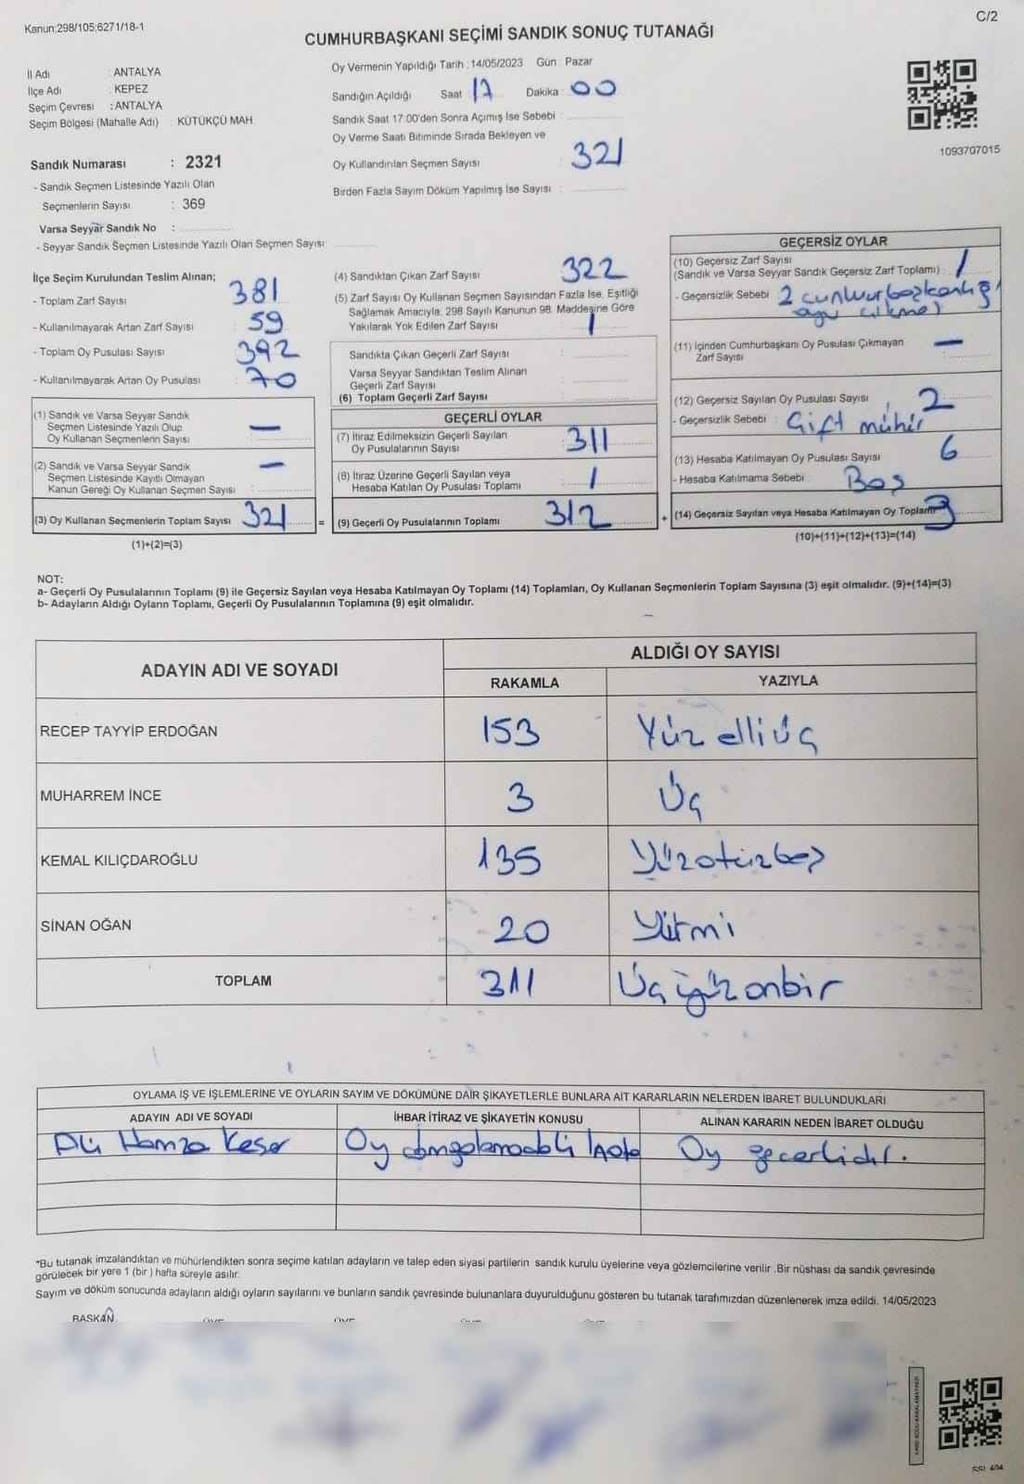 Kanun:298/105;6271/18-1
C/2
CUMHURBAŞKANI SEÇİMİ SANDIK SONUÇ TUTANAĞI
İl Adı : ANTALYA
İlçe Adı : KEPEZ
Seçim Çevresi : ANTALYA
Seçim Bölgesi (Mahalle Adı) : KÜTÜKÇÜ MAH
Sandık Numarası : 2321
- Sandık Seçmen Listesinde Yazılı Olan
Seçmenlerin Sayısı : 369
Varsa Seyyar Sandık No :
- Seyyar Sandık Seçmen Listesinde Yazılı Olan Seçmen Sayısı
Oy Vermenin Yapıldığı Tarih : 14/05/2023 Gün Pazar
Sandığın Açıldığı Saat 17 Dakika : 00
Sandık Saat 17:00'den Sonra Açımış İse Sebebi :
Oy Verme Saati Bitiminde Sırada Bekleyen ve
Oy Kullandırılan Seçmen Sayısı : 321
Birden Fazla Sayım Döküm Yapılmış İse Sayısı :
1093707015
İlçe Seçim Kurulundan Teslim Alınan;
- Toplam Zarf Sayısı : 381
- Kullanılmayarak Artan Zarf Sayısı : 59
- Toplam Oy Pusulası Sayısı : 392
- Kullanılmayarak Artan Oy Pusulası : 70
(1) Sandık ve Varsa Seyyar Sandık
Seçmen Listesinde Yazılı Olup
Oy Kullanan Seçmenlerin Sayısı : —
(2) Sandık ve Varsa Seyyar Sandık
Seçmen Listesinde Kayıtlı Olmayan
Kanun Gereği Oy Kullanan Seçmen Sayısı : —
(3) Oy Kullanan Seçmenlerin Toplam Sayısı : 321 =
(1)+(2)=(3)
(4) Sandıktan Çıkan Zarf Sayısı : 322
(5) Zarf Sayısı Oy Kullanan Seçmen Sayısından Fazla İse, Eşitliği
Sağlamak Amacıyla, 298 Sayılı Kanunun 98. Maddesine Göre
Yakılarak Yok Edilen Zarf Sayısı : 1
Sandıkta Çıkan Geçerli Zarf Sayısı :
Varsa Seyyar Sandıktan Teslim Alınan
Geçerli Zarf Sayısı :
(6) Toplam Geçerli Zarf Sayısı :
GEÇERLİ OYLAR
(7) İtiraz Edilmeksizin Geçerli Sayılan
Oy Pusulalarının Sayısı : 311
(8) İtiraz Üzerine Geçerli Sayılan veya
Hesaba Katılan Oy Pusulası Toplamı : 1
(9) Geçerli Oy Pusulalarının Toplamı : 312 +
GEÇERSİZ OYLAR
(10) Geçersiz Zarf Sayısı
(Sandık ve Varsa Seyyar Sandık Geçersiz Zarf Toplamı) : 1
- Geçersizlik Sebebi : 2 cumhurbaşkanlığı
oyu çıkması
(11) İçinden Cumhurbaşkanı Oy Pusulası Çıkmayan
Zarf Sayısı : —
(12) Geçersiz Sayılan Oy Pusulası Sayısı : 2
- Geçersizlik Sebebi : Çift mühür
(13) Hesaba Katılmayan Oy Pusulası Sayısı : 6
- Hesaba Katılmama Sebebi : Boş
(14) Geçersiz Sayılan veya Hesaba Katılmayan Oy Toplamı 3
(10)+(11)+(12)+(13)=(14)
NOT:
a- Geçerli Oy Pusulalarının Toplamı (9) ile Geçersiz Sayılan veya Hesaba Katılmayan Oy Toplamı (14) Toplamları, Oy Kullanan Seçmenlerin Toplam Sayısına (3) eşit olmalıdır. (9)+(14)=(3)
b- Adayların Aldığı Oyların Toplamı, Geçerli Oy Pusulalarının Toplamına (9) eşit olmalıdır.
ADAYIN ADI VE SOYADI
ALDIĞI OY SAYISI
RAKAMLA YAZIYLA
RECEP TAYYİP ERDOĞAN 153 Yüz elli üç
MUHARREM İNCE 3 Üç
KEMAL KILIÇDAROĞLU 135 Yüzotuzbeş
SİNAN OĞAN 20 Yirmi
TOPLAM 311 Üçyüzonbir
OYLAMA İŞ VE İŞLEMLERİNE VE OYLARIN SAYIM VE DÖKÜMÜNE DAİR ŞİKAYETLERLE BUNLARA AİT KARARLARIN NELERDEN İBARET BULUNDUKLARI
ADAYIN ADI VE SOYADI İHBAR İTİRAZ VE ŞİKAYETİN KONUSU ALINAN KARARIN NEDEN İBARET OLDUĞU
Ali Hamza Keser Oy Oy geçerlidir.
*Bu tutanak imzalandıktan ve mühürlendikten sonra seçime katılan adayların ve talep eden siyasi partilerin sandık kurulu üyelerine veya gözlemcilerine verilir .Bir nüshası da sandık çevresinde
görülecek bir yere 1 (bir ) hafta süreyle asılır.
Sayım ve döküm sonucunda adayların aldığı oyların sayılarını ve bunların sandık çevresinde bulunanlara duyurulduğunu gösteren bu tutanak tarafımızdan düzenlenerek imza edildi. 14/05/2023
BAŞKAN